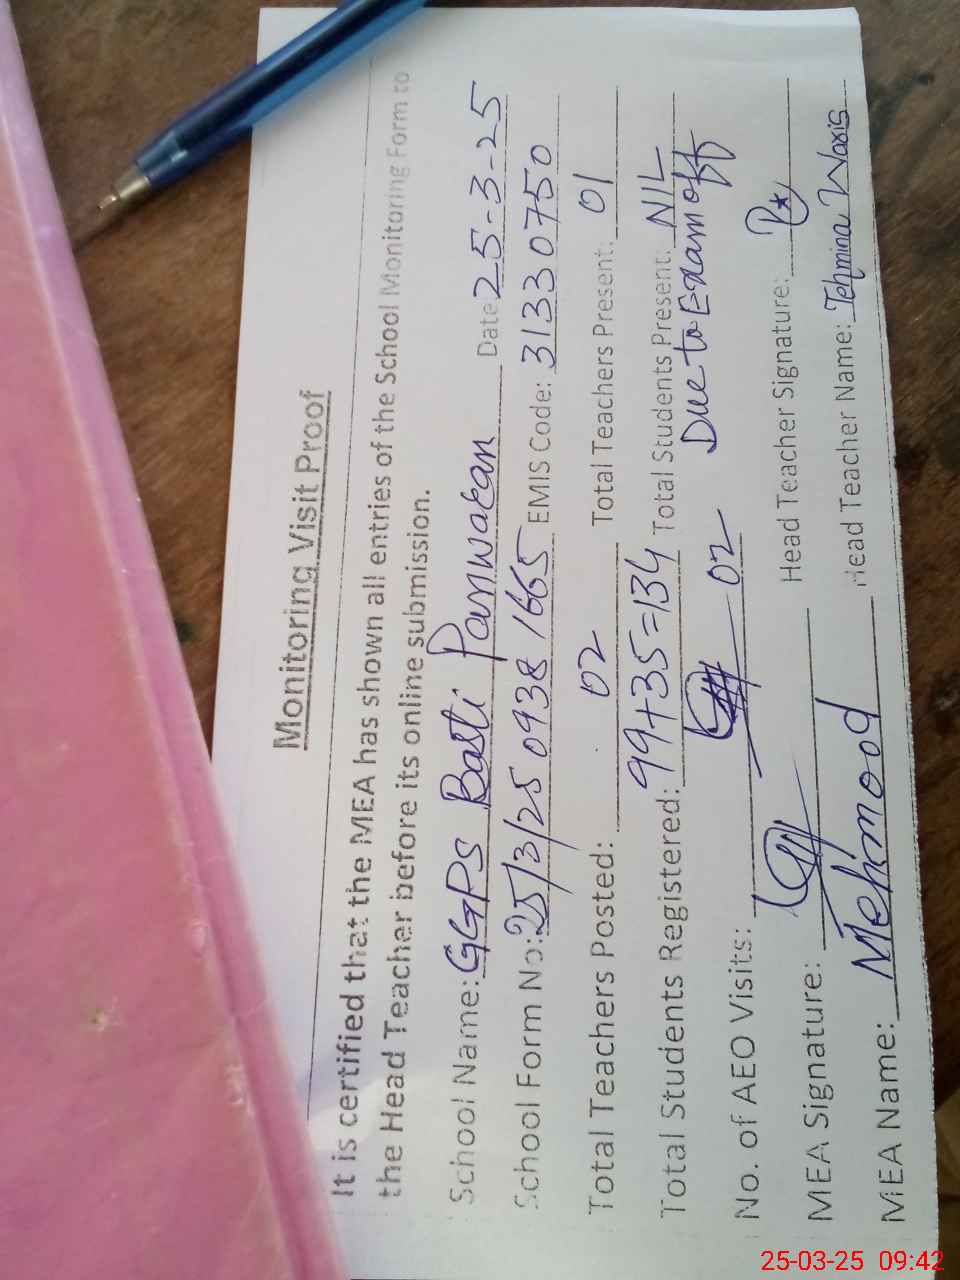 Monitoring Visit Proof
It is certified that the MEA has shown all entries of the School Monitoring Form to
the Head Teacher before its online submission.
School Name: GGPS Basti Panwakan Date 25-3-25
School Form No: 25/3/25 0938 1665 EMIS Code: 31330750
Total Teachers Posted: 02 Total Teachers Present: 01
Total Students Registered: 99+35=134 Total Students Present: NIL
Due to Exam off
No. of AEO Visits: 02
MEA Signature: Head Teacher Signature:
MEA Name: Mehmood Head Teacher Name: Tehmina Waris
25-03-25 09:42